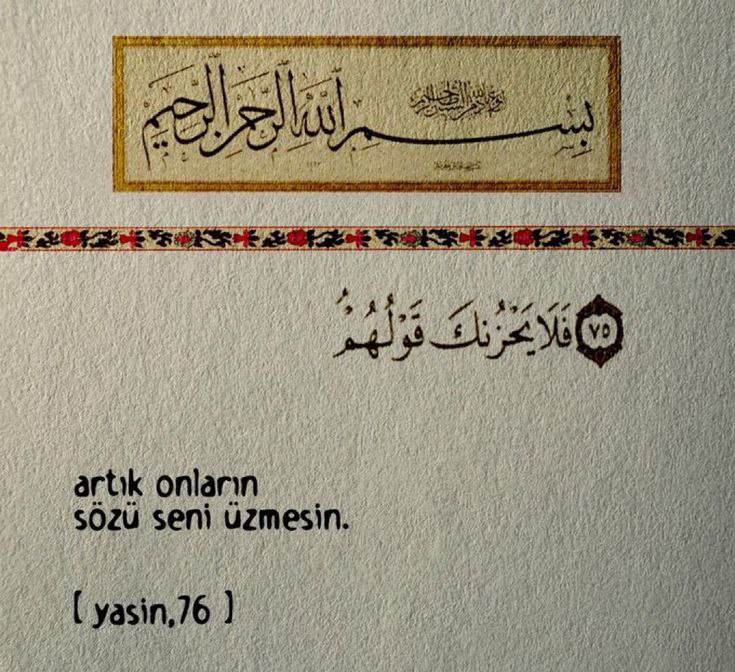 بِسْمِ اللَّهِ الرَّحْمَٰنِ الرَّحِيمِ
٧٥ فَلَا يَحْزُنكَ قَوْلُهُمْ
artık onların
sözü seni üzmesin.
[ yasin,76 ]